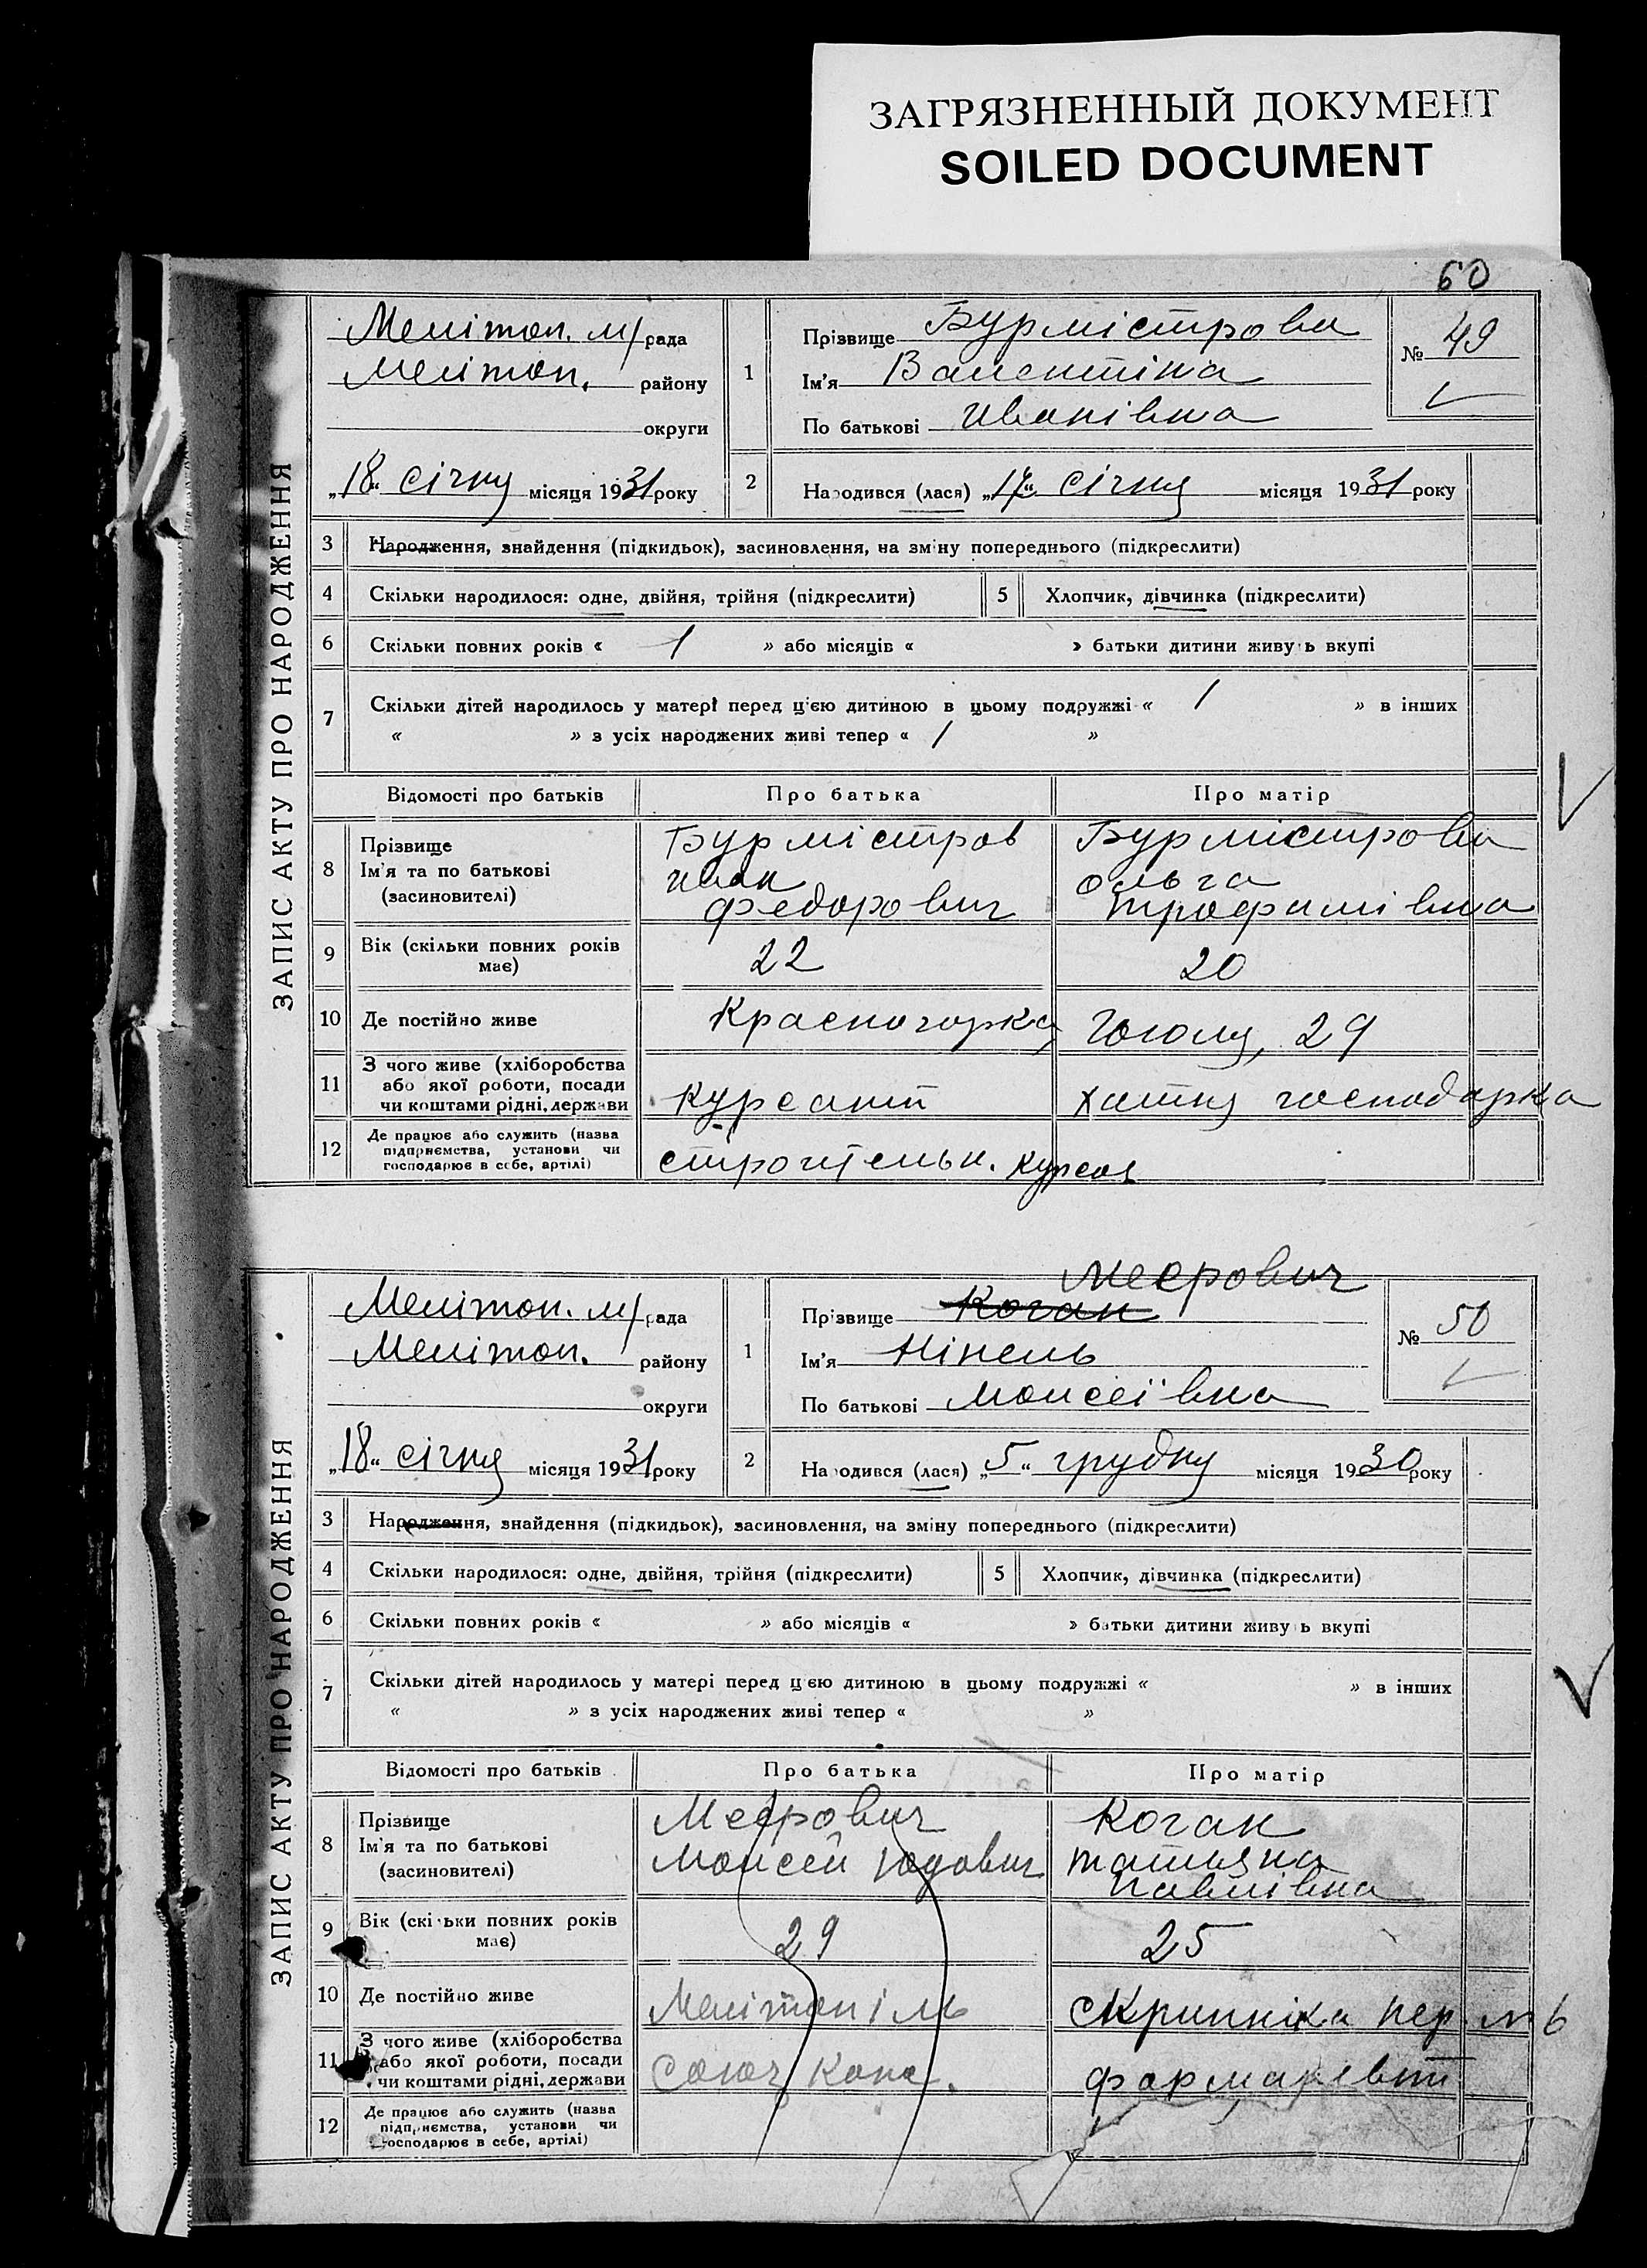 ЗАГРЯЗНЕННЫЙ ДОКУМЕНТ
SOILED DOCUMENT
60
ЗАПИС АКТУ ПРО НАРОДЖЕННЯ
Мелітоп. м/рада
Мелітоп. району
округи
"18" січня місяця 1931 року
1
Прізвище Бурмістрова
Ім'я Валентіна
По батькові Иванівна
№ 49
2
Народився (лася) " " січня місяця 1931 року
3 Народження, знайдення (підкидьок), засиновлення, на зміну попереднього (підкреслити)
4 Скільки народилося: одне, двійня, трійня (підкреслити)
5 Хлопчик, дівчинка (підкреслити)
6 Скільки повних років « 1 » або місяців « » батьки дитини живуть вкупі
7 Скільки дітей народилось у матері перед ц'єю дитиною в цьому подружжі « 1 » в інших
« » з усіх народжених живі тепер « 1 »
Відомості про батьків Про батька Про матір
8 Прізвище
Ім'я та по батькові
(засиновителі)
Бурмістров
Иван
Федорович
Бурмістрова
Ольга
Трофимівна
9 Вік (скільки повних років
має)
22
20
10 Де постійно живе
Красногорка,
Гоголя, 29
11 З чого живе (хліборобства
або якої роботи, посади
чи коштами рідні, держави
курсант
хатня господарка
12 Де працює або служить (назва
підприємства, установи чи
господарює в себе, артілі)
строітельн. курсов
ЗАПИС АКТУ ПРО НАРОДЖЕННЯ
Мелітоп. м/рада
Мелітоп. району
округи
"18" січня місяця 1931 року
1
Меєрович
Прізвище Коган
Ім'я Нінель
По батькові Моисеївна
№ 50
2
Народився (лася) "5" грудня місяця 1930 року
3 Народження, знайдення (підкидьок), засиновлення, на зміну попереднього (підкреслити)
4 Скільки народилося: одне, двійня, трійня (підкреслити)
5 Хлопчик, дівчинка (підкреслити)
6 Скільки повних років « » або місяців « » батьки дитини живуть вкупі
7 Скільки дітей народилось у матері перед ц'єю дитиною в цьому подружжі « » в інших
« » з усіх народжених живі тепер « »
Відомості про батьків Про батька Про матір
8 Прізвище
Ім'я та по батькові
(засиновителі)
Меєрович
Моисей Юдович
Коган
Татьяна
Павлівна
9 Вік (скільки повних років
має)
29
25
10 Де постійно живе
Мелітопіль
Скрипніка пер. № 6
11 З чого живе (хліборобства
або якої роботи, посади
чи коштами рідні, держави
Союз
фармацевт
12 Де працює або служить (назва
підприємства, установи чи
господарює в себе, артілі)